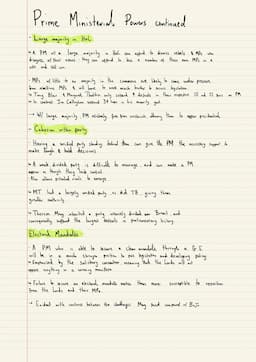 Prime Ministerial Powers continued
- Large majority in HoC
- A PM w/ a large majority in HoC can afford to dismiss rebels & MPs who
disagree w/ their views; they can afford to lose a number of their own MPs in a
vote and still win.
- MPs w/ little to no majority in the commons are likely to come under pressure
from rebellious MPs & will have to work much harder to ensure legislation
→ Tony Blair & Margaret Thatcher only suffered 4 defeats in their respective 10 and 11 years as PM
↳ in contrast Jim Callaghan suffered 34 times in his minority govt.
→ W/ large majority, PM evidently gives him immense allowing them to appear presidential.
- Cohesion within party
- Having a united party standing behind them can give the PM the necessary support to
make tough & bold decisions.
→ A weak divided party is difficult to manage and can make a PM
appear as though they lack control.
- Also allows potential rivals to emerge.
→ MT had a largely united party as did TB, giving them
greater authority.
→ Theresa May inherited a party intensely divided over Brexit, and
consequently suffered the largest defeats in parliamentary history.
- Electoral Mandates
- A PM who is able to secure a clear mandate through a G.E
will be in a much stronger position to pass legislation and developing policy.
↳ Empowered by the salisbury convention, meaning that the Lords will not
oppose anything in a winning manifesto.
→ Failure to secure an electoral mandate makes them more susceptible to opposition
from the Lords and their MPs.
→ Evident with contrast between the challenges May faced compared w/ BoJo